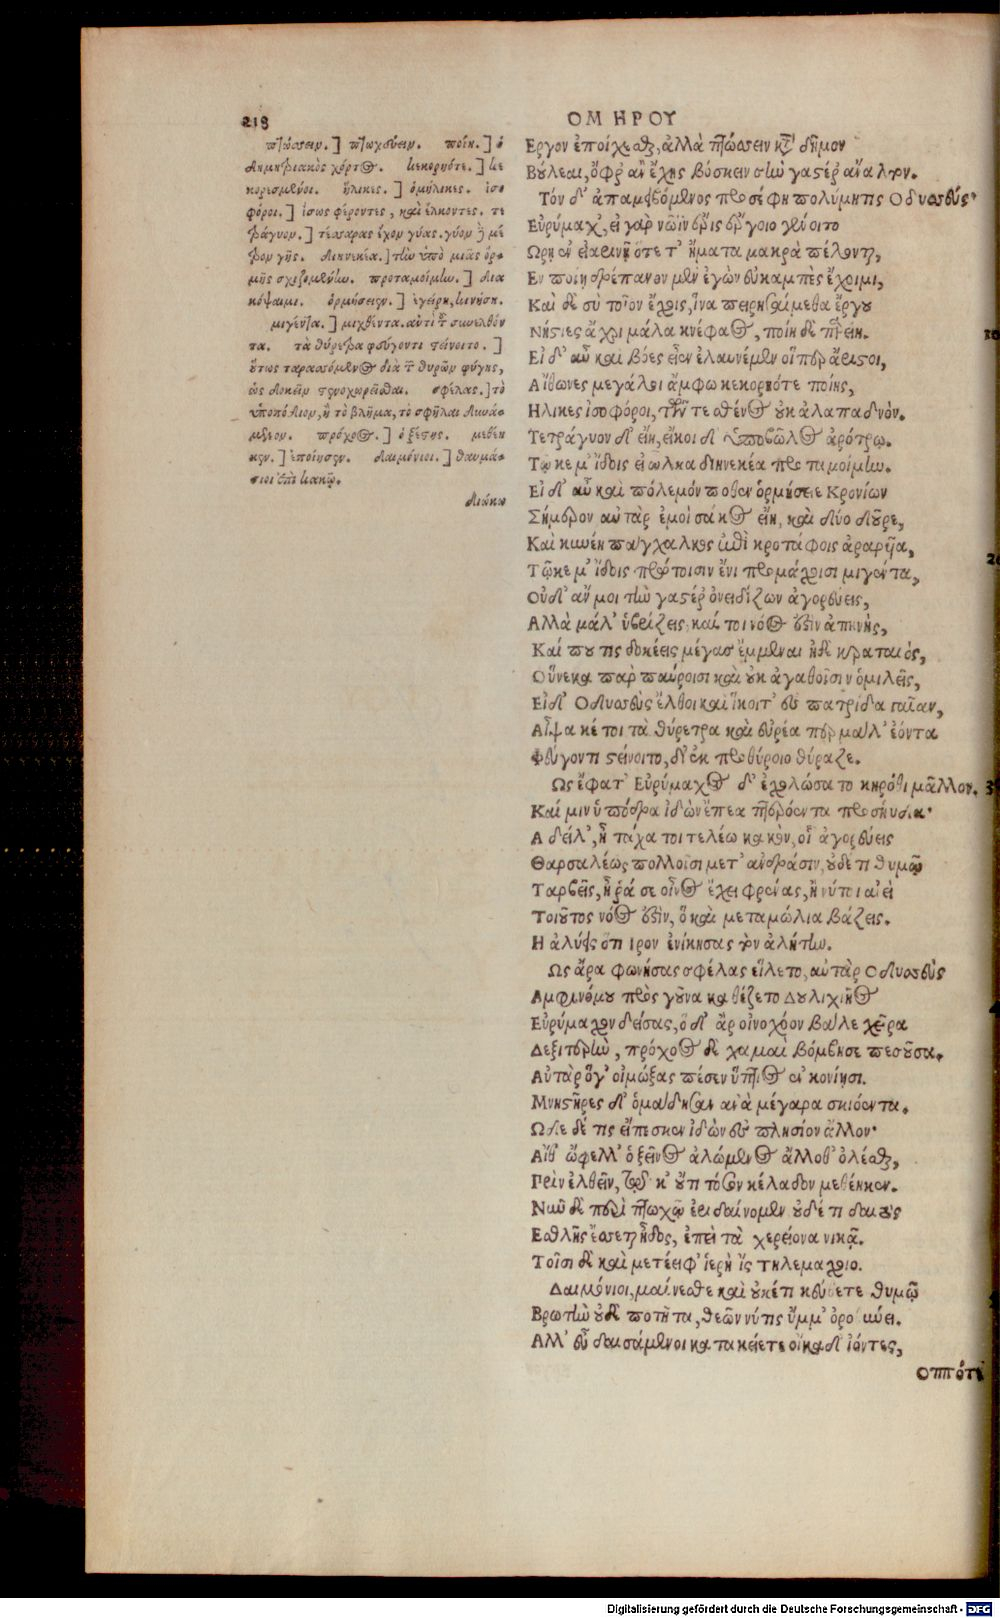 218
ΟΜΗΡΟΥ
πτώσσειν.] πτωχεύειν. ποίη.] ὁ
δημητριακὸς χόρτος. κεκορηότε.] κε
κορεσμένοι. ἥλικες.] ὁμήλικες. ἰσο
φόροι.] ἴσως φέροντες, καὶ ἕλκοντες. τε
τράγυον.] τέσσαρας ἔχον γύας. γύον ἢ μέ
τρον γῆς. διηνεκέα.] τὴν ὑπὸ μιᾶς ὁρ-
μῆς σχιζομένην. προταμοίμην.] δια
κόψαιμι. ὁρμήσειεν.] ἐγείρῃ, κινήσῃ.
μιγέντα.] μιχθέντα. αὐτὶ τοῦ συνελθόν
τα. τὰ θύρετρα φεύγοντι στείνοιτο.]
οὕτως ταρασσόμενος διὰ τῶν θυρῶν φύγης,
ὡς δοκεῖν στενοχωρεῖσθαι. σφέλας.] τὸ
ὑποπόδιον, ἢ τὸ βλῆμα, τὸ σφῆλαι δυνά-
μενον. πρόχοος.] ὁ ξέστης. μεθέη
κεν.] ἐποίησεν. δαιμόνιοι.] θαυμά-
σιοι ἐπὶ κακῷ.
διώκω
Εργον ἐποίχεσθαι, ἀλλὰ πτώσσειν κατὰ δῆμον
Βούλεαι, ὄφρ ἂν ἔχῃς βόσκειν σὴν γαστέρ ἄναλτον.
Τὸν δ' ἀπαμειβόμενος προσέφη πολύμητις Οδυσσεύς·
Εὐρύμαχ', εἰ γὰρ νῶϊν ἔρις ἔργοιο γένοιτο
Ωρῃ ἐν εἰαρινῇ ὅτε τ' ἤματα μακρὰ πέλονται,
Εν ποίῃ δρέπανον μὲν ἐγὼν εὐκαμπὲς ἔχοιμι,
Καὶ δὲ σὺ τοῖον ἔχοις, ἵνα πειρησαίμεθα ἔργου
Νήστιες ἄχρι μάλα κνέφαος, ποίη δὲ παρείη.
Εἰ δ' αὖ καὶ βόες εἶεν ἐλαυνέμεν οἵπερ ἄριστοι,
Αἴθωνες μεγάλοι ἄμφω κεκορηότε ποίης,
Ηλικες ἰσοφόροι, τῶν τε σθένος οὐκ ἀλαπαδνὸν.
Τετράγυον δ' εἴη, εἴκοι δ' ὑπὸ βῶλος ἀρότρῳ.
Τῷ κε μ' ἴδοις εἰ ὦλκα διηνεκέα προταμοίμην.
Εἰ δ' αὖ καὶ πόλεμόν ποθεν ὁρμήσειε Κρονίων
Σήμερον αὐτὰρ ἐμοὶ σάκος εἴη, καὶ δύο δοῦρε,
Καὶ κυνέη πάγχαλκος ἐπὶ κροτάφοις ἀραρυῖα,
Τῷ κε μ' ἴδοις πρώτοισιν ἐνὶ προμάχοισι μιγέντα,
Οὐδ' ἄν μοι τὴν γαστέρ ὀνειδίζων ἀγορεύεις,
Αλλὰ μάλ' ὑβρίζεις, καί τοι νόος ἐστὶν ἀπηνής,
Καί που τις δοκέεις μέγας ἔμμεναι ἠδὲ κραταιός,
Οὕνεκα παρ παύροισι καὶ οὐκ ἀγαθοῖσιν ὁμιλεῖς,
Εἰ δ' Οδυσσεὺς ἔλθοι καὶ ἵκοιτ' ἐς πατρίδα γαῖαν,
Αἶψα κέ τοι τὰ θύρετρα καὶ εὐρέα περ μάλ' ἐόντα
Φεύγοντι στείνοιτο, δι' ἐκ προθύροιο θύραζε.
Ως ἔφατ' Εὐρύμαχος δ' ἐχολώσατο κηρόθι μᾶλλον.
Καί μιν ὑπόδρα ἰδὼν ἔπεα πτερόεντα προσηύδα·
Α δείλ', ἦ τάχα τοι τελέω κακόν, οἷ' ἀγορεύεις
Θαρσαλέως πολλοῖσι μετ' ἀνδράσιν, οὐδέ τι θυμῷ
Ταρβεῖς, ἦ ῥά σε οἶνος ἔχει φρένας, ἤ νύ τοι αἰεὶ
Τοιοῦτος νόος ἐστὶν, ὃ καὶ μεταμώλια βάζεις.
Η ἀλύεις ὅτι Ιρον ἐνίκησας τὸν ἀλήτην.
Ως ἄρα φωνήσας σφέλας εἵλετο, αὐτὰρ Οδυσσεὺς
Αμφινόμου πρὸς γοῦνα καθέζετο Δουλιχιῆος
Εὐρύμαχον δείσας, ὁ δ' ἄρ οἰνοχόον βάλε χεῖρα
Δεξιτερήν, πρόχοος δὲ χαμαὶ βόμβησε πεσοῦσα.
Αὐτὰρ ὅγ' οἰμώξας πέσεν ὕπτιος ἐν κονίῃσι.
Μνηστῆρες δ' ὁμάδησαν ἀνὰ μέγαρα σκιόεντα.
Ωδε δέ τις εἴπεσκεν ἰδὼν ἐς πλησίον ἄλλον·
Αἴθ' ὤφελλ' ὁ ξεῖνος ἀλώμενος ἄλλοθ' ὀλέσθαι,
Πρὶν ἐλθεῖν, τῷ κ' οὔτι τόσον κέλαδον μεθέηκεν.
Νῦν δὲ περὶ πτωχῶν ἐριδαίνομεν οὐδέ τι δαιτὸς
Εσθλῆς ἔσσεται ἦδος, ἐπεὶ τὰ χερείονα νικᾷ.
Τοῖσι δὲ καὶ μετέειφ' ἱερὴ ἲς Τηλεμάχοιο.
Δαιμόνιοι, μαίνεσθε καὶ οὐκέτι κεύθετε θυμῷ
Βρωτὺν οὐδὲ ποτῆτα, θεῶν νύ τις ὔμμ' ὀροθύνει.
Αλλ' εὖ δαισάμενοι κατακείετε οἴκαδ' ἰόντες,
Οππότε
Digitalisierung gefördert durch die Deutsche Forschungsgemeinschaft - DFG